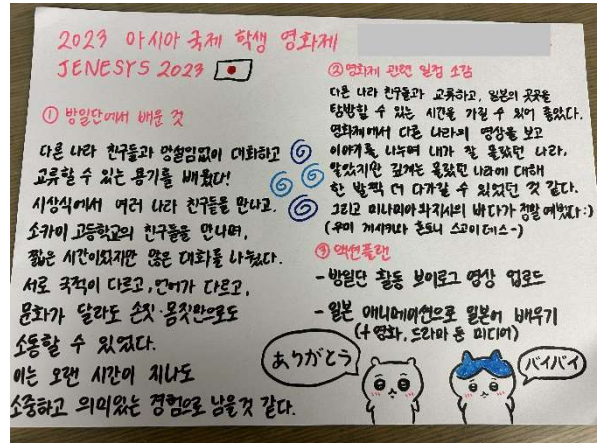 2023 아시아 국제 학생 영화제
JENESYS 2023
① 방일단에서 배운 것
다른 나라 친구들과 망설임없이 대화하고
교류할 수 있는 용기를 배웠다!
시상식에서 여러 나라 친구들을 만나고,
소카이 고등학교의 친구들을 만나며,
짧은 시간이었지만 많은 대화를 나눴다.
서로 국적이 다르고, 언어가 다르고,
문화가 달라도 손짓·몸짓만으로도
소통할 수 있었다.
이는 오랜 시간이 지나도
소중하고 의미있는 경험으로 남을것 같다.
② 영화제 관련 일정 소감
다른 나라 친구들과 교류하고, 일본의 곳곳을
탐방할 수 있는 시간을 가질 수 있어 좋았다.
영화제에서 다른 나라의 영상을 보고
이야기를 나누며 내가 잘 몰랐던 나라,
알았지만 깊게는 몰랐던 나라에 대해
한 발짝 더 다가갈 수 있었던 것 같다.
그리고 미나미아와지시의 바다가 정말 예뻤다:)
(우미 게시키가 혼토니 스고이데스~)
③ 액션플랜
- 방일단 활동 브이로그 영상 업로드
- 일본 애니메이션으로 일본어 배우기
(+ 영화, 드라마 등 미디어)
ありがとう
バイバイ